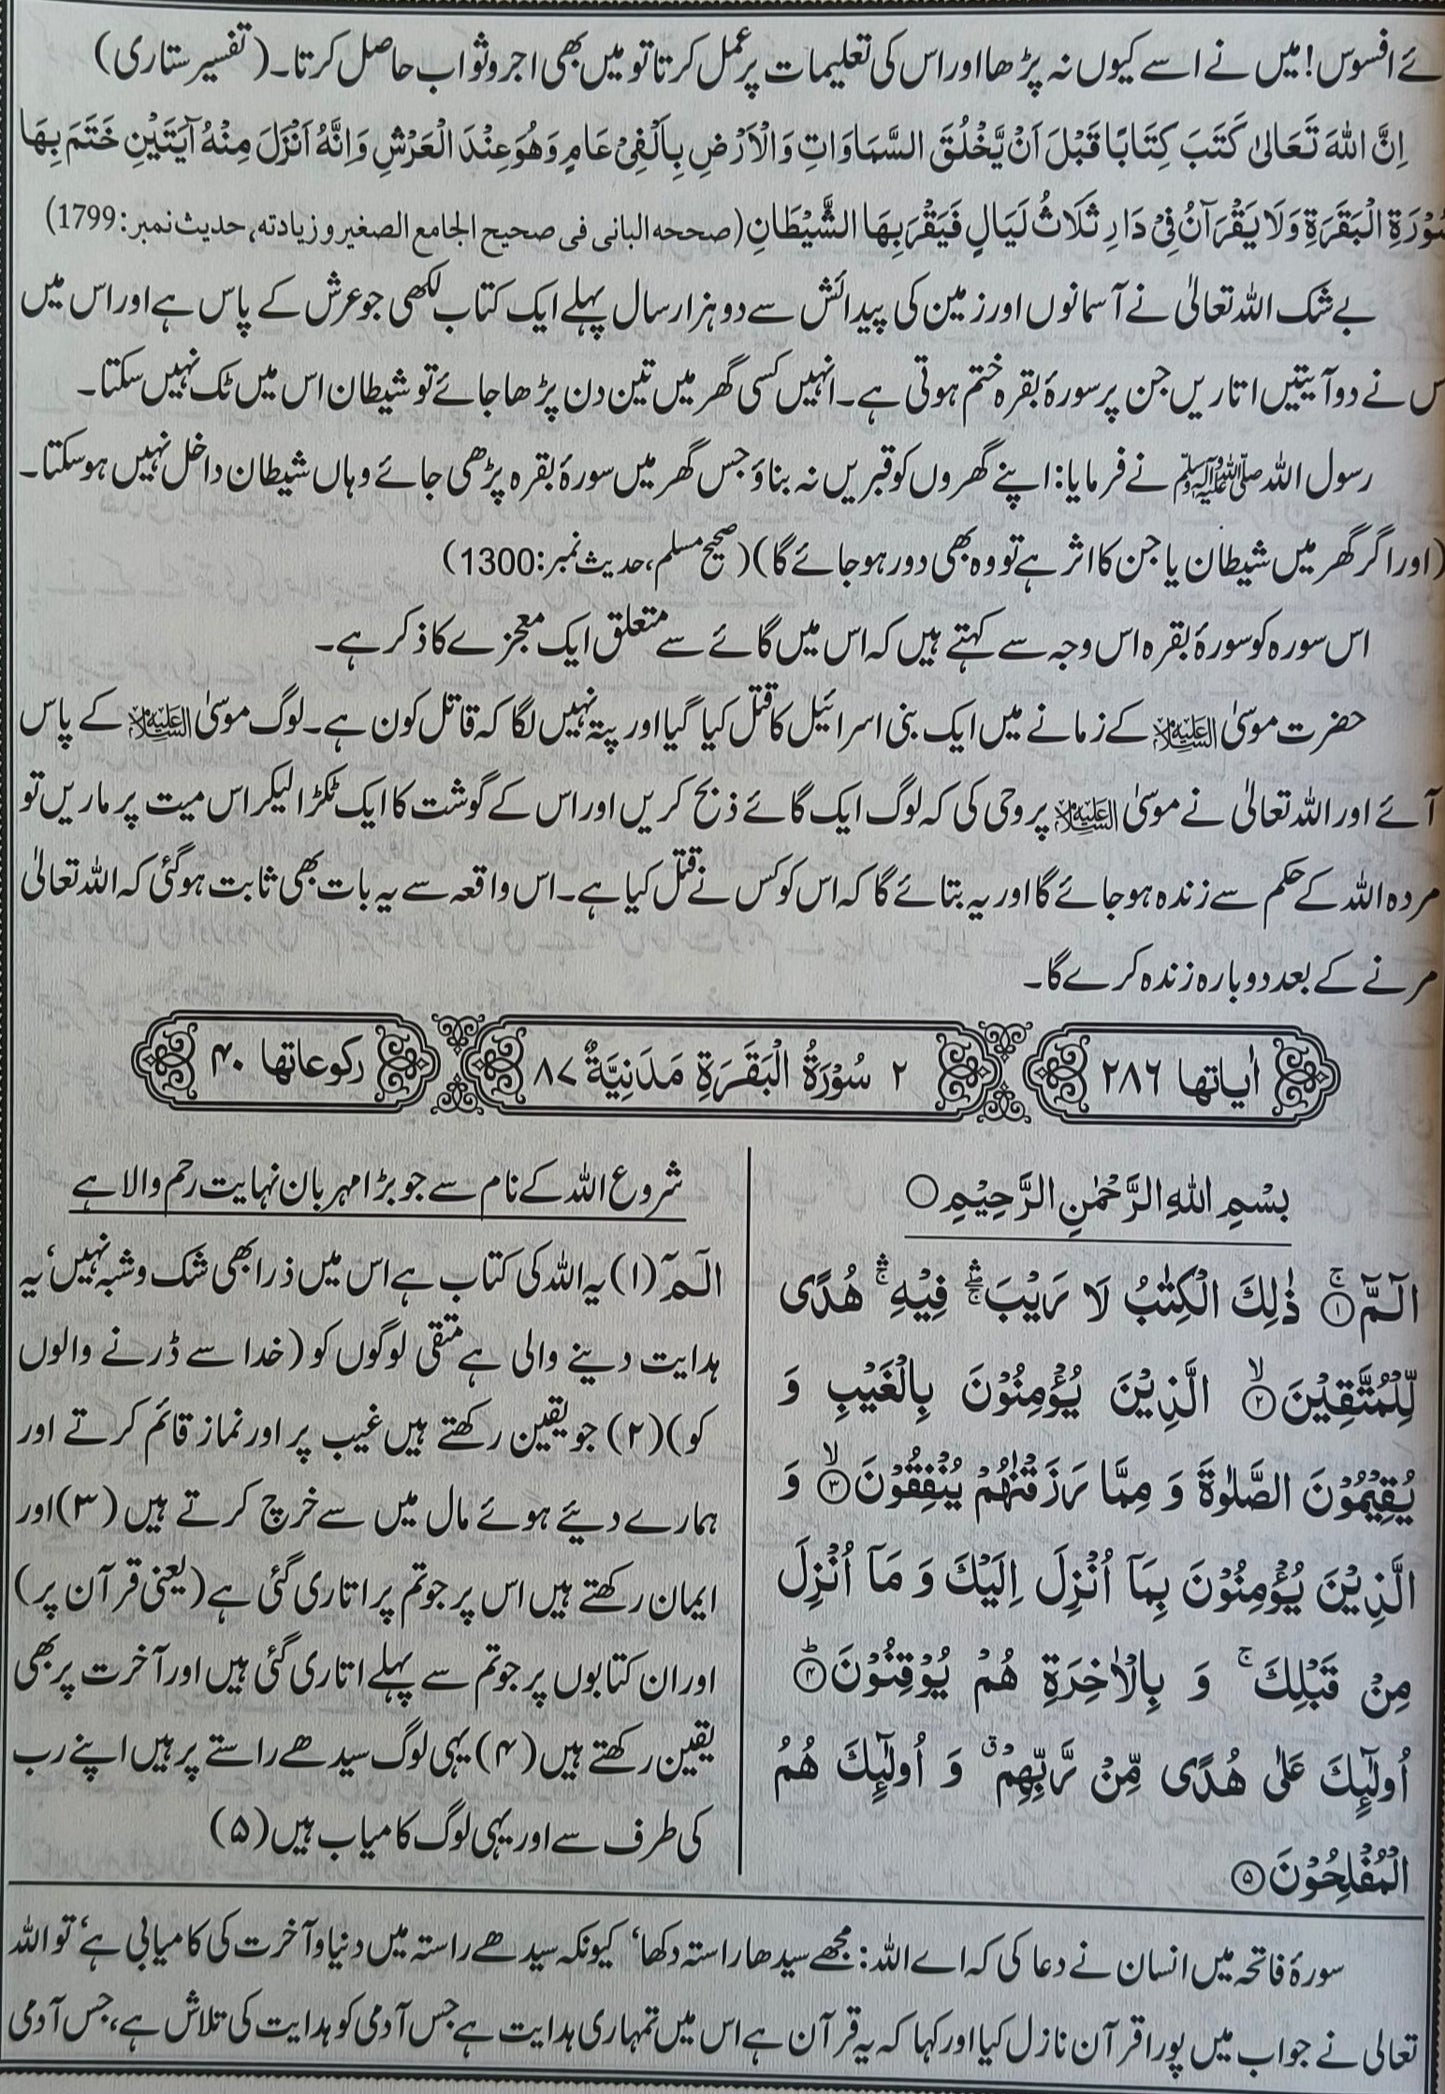 ئے افسوس! میں نے اسے کیوں نہ پڑھا اور اس کی تعلیمات پر عمل کرتا تو میں بھی اجر و ثواب حاصل کرتا۔ (تفسیر ستاری)
اِنَّ اللّٰهَ تَعَالىٰ كَتَبَ كِتَابًا قَبْلَ اَنْ يَّخْلُقَ السَّمَاوَاتِ وَالْاَرْضِ بِاَلْفِيْ عَامٍ وَهُوَ عِنْدَ الْعَرْشِ وَاِنَّهُ اَنْزَلَ مِنْهُ آيَتَيْنِ خَتَمَ بِهَا
سُوْرَةِ الْبَقَرَةِ وَلَا يَقْرَآنُ فِيْ دَارٍ ثَلَاثُ لَيَالٍ فَيَقْرَ بِهَا الشَّيْطَانِ (صححه البانى فى صحيح الجامع الصغير و زيادته، حديث نمبر: 1799)
بے شک اللہ تعالیٰ نے آسمانوں اور زمین کی پیدائش سے دو ہزار سال پہلے ایک کتاب لکھی جو عرش کے پاس ہے اور اس میں
س نے دو آیتیں اتاریں جن پر سورۂ بقرہ ختم ہوتی ہے۔ انہیں کسی گھر میں تین دن پڑھا جائے تو شیطان اس میں ٹک نہیں سکتا۔
رسول اللہ ﷺ نے فرمایا: اپنے گھروں کو قبریں نہ بناؤ جس گھر میں سورۂ بقرہ پڑھی جائے وہاں شیطان داخل نہیں ہوسکتا۔
(اور اگر گھر میں شیطان یا جن کا اثر ہے تو وہ بھی دور ہوجائے گا) (صحیح مسلم، حدیث نمبر: 1300)
اس سورہ کو سورۂ بقرہ اس وجہ سے کہتے ہیں کہ اس میں گائے سے متعلق ایک معجزے کا ذکر ہے۔
حضرت موسیٰ علیہ السلام کے زمانے میں ایک بنی اسرائیل کا قتل کیا گیا اور پتہ نہیں لگا کہ قاتل کون ہے۔ لوگ موسیٰ علیہ السلام کے پاس
آئے اور اللہ تعالیٰ نے موسیٰ علیہ السلام پر وحی کی کہ لوگ ایک گائے ذبح کریں اور اس کے گوشت کا ایک ٹکڑا لیکر اس میت پر ماریں تو
مردہ اللہ کے حکم سے زندہ ہوجائے گا اور یہ بتائے گا کہ اس کو کس نے قتل کیا ہے۔ اس واقعہ سے یہ بات بھی ثابت ہوگئی کہ اللہ تعالیٰ
مرنے کے بعد دوبارہ زندہ کرے گا۔
اٰیاتها ۲۸۶
۲ سُوْرَةُ الْبَقَرَةِ مَدَنِيَّةٌ ۸۷
رکوعاتها ۴۰
بِسْمِ اللّٰهِ الرَّحْمٰنِ الرَّحِيْمِ
الٓمّٓ ۚ﴿۱﴾ ذٰلِكَ الْكِتٰبُ لَا رَيْبَ ۛۖۚ فِيْهِ ۛۚ هُدًى
لِّلْمُتَّقِيْنَ ۙ﴿۲﴾ الَّذِيْنَ يُؤْمِنُوْنَ بِالْغَيْبِ وَ
يُقِيْمُوْنَ الصَّلٰوةَ وَ مِمَّا رَزَقْنٰهُمْ يُنْفِقُوْنَ ۙ﴿۳﴾ وَ
الَّذِيْنَ يُؤْمِنُوْنَ بِمَآ اُنْزِلَ اِلَيْكَ وَ مَآ اُنْزِلَ
مِنْ قَبْلِكَ ۚ وَ بِالْاٰخِرَةِ هُمْ يُوْقِنُوْنَ ؕ﴿۴﴾
اُولٰٓئِكَ عَلٰى هُدًى مِّنْ رَّبِّهِمْ ۗ وَ اُولٰٓئِكَ هُمُ
الْمُفْلِحُوْنَ ﴿۵﴾
شروع اللہ کے نام سے جو بڑا مہربان نہایت رحم والا ہے
الٓمّٓ (۱) یہ اللہ کی کتاب ہے اس میں ذرا بھی شک و شبہ نہیں، یہ
ہدایت دینے والی ہے متقی لوگوں کو (خدا سے ڈرنے والوں
کو) (۲) جو یقین رکھتے ہیں غیب پر اور نماز قائم کرتے اور
ہمارے دیئے ہوئے مال میں سے خرچ کرتے ہیں (۳) اور
ایمان رکھتے ہیں اس پر جو تم پر اتاری گئی ہے (یعنی قرآن پر)
اور ان کتابوں پر جو تم سے پہلے اتاری گئی ہیں اور آخرت پر بھی
یقین رکھتے ہیں (۴) یہی لوگ سیدھے راستے پر ہیں اپنے رب
کی طرف سے اور یہی لوگ کامیاب ہیں (۵)
سورۂ فاتحہ میں انسان نے دعا کی کہ اے اللہ: مجھے سیدھا راستہ دکھا، کیونکہ سیدھے راستہ میں دنیا و آخرت کی کامیابی ہے، تو اللہ
تعالی نے جواب میں پورا قرآن نازل کیا اور کہا کہ یہ قرآن ہے اس میں تمہاری ہدایت ہے جس آدمی کو ہدایت کی تلاش ہے، جس آدمی